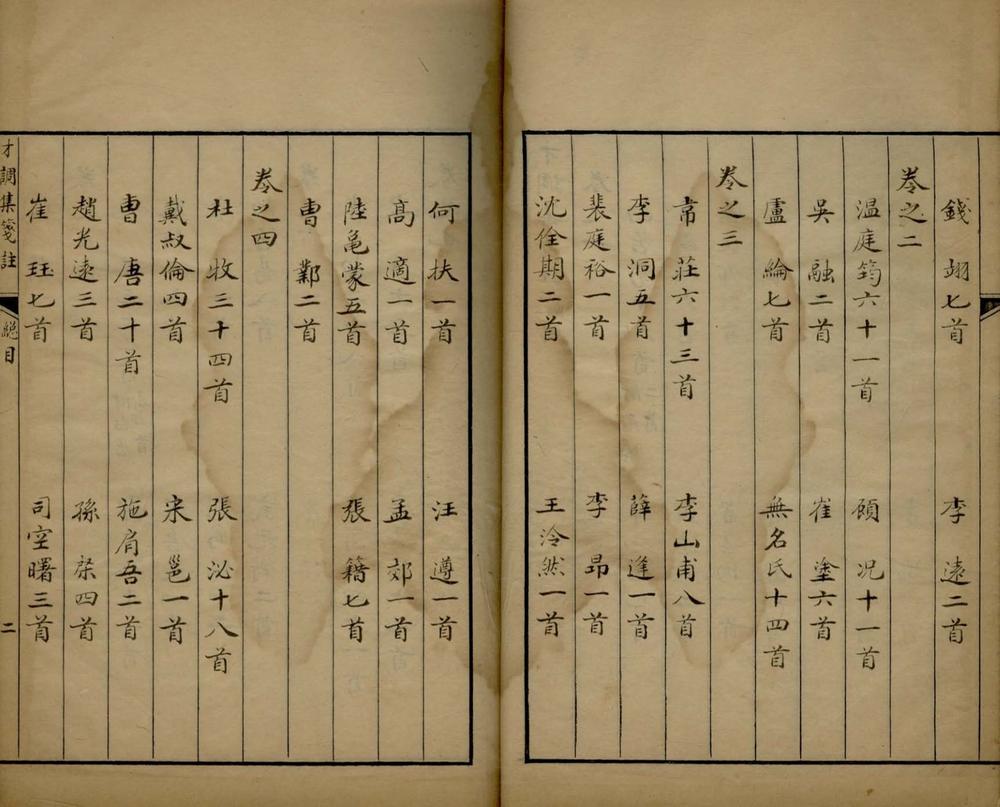 錢 翊七首 李 遠二首
卷之二
温庭筠六十一首 顧 况十一首
吳 融二首 崔 塗六首
盧 綸七首 無名氏十四首
卷之三
韋 莊六十三首 李山甫八首
李 洞五首 薛 逢一首
裴庭裕一首 李 昂一首
沈佺期二首 王泠然一首
何 扶一首 汪 遵一首
高 適一首 孟 郊一首
陸龜蒙五首 張 籍七首
曹 鄴二首
卷之四
杜 牧三十四首 張 泌十八首
戴叔倫四首 宋 邕一首
曹 唐二十首 施肩吾二首
趙光遠三首 孫 棨四首
崔 珏七首 司空曙三首
才調集箋註 總目 二